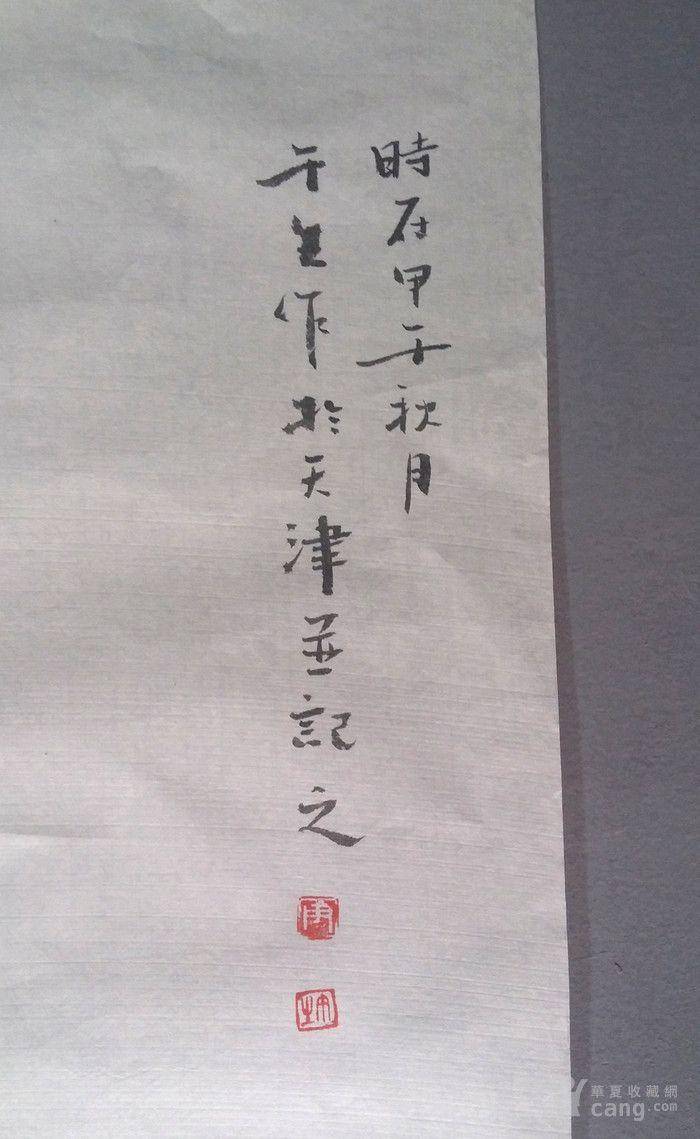 時在甲子秋月
千里作於天津並記之
華夏收藏網
cang.com